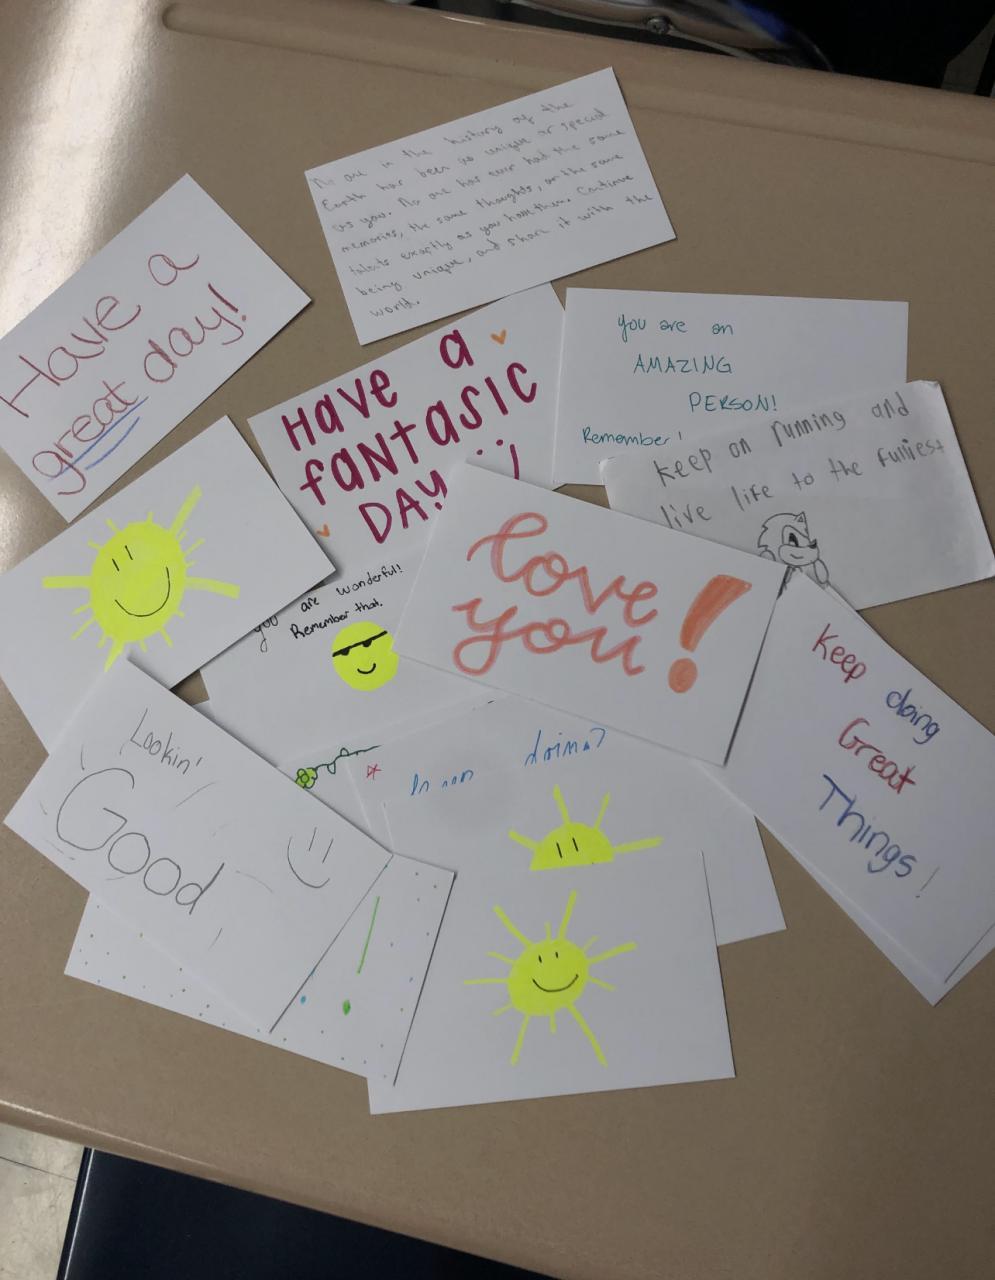 No one in the history of the
Earth has been as unique or special
as you. No one has ever had the same
memories, the same thoughts, or the same
talents exactly as you have them. Continue
being unique, and share it with the
world.
Have a
great day!
Have a
fantasic
Day :)
you are an
AMAZING
PERSON!
Remember!
keep on running and
live life to the funiest
you are wonderful!
Remember that.
love
you!
Keep
doing
Great
Things!
Lookin'
Good